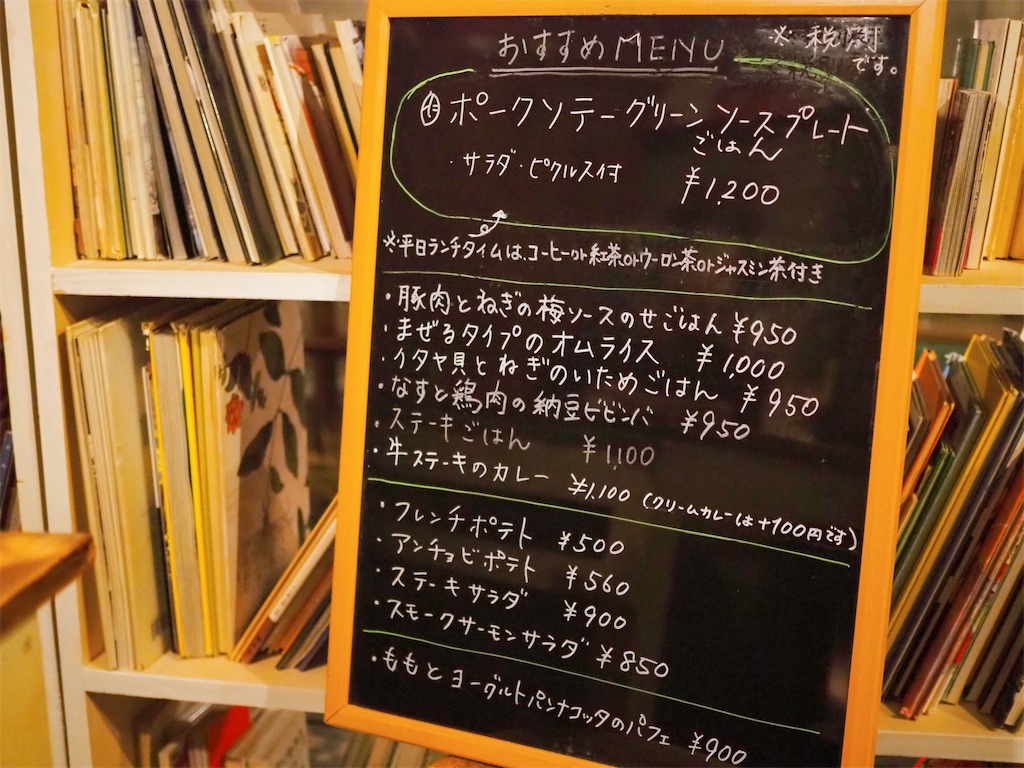 おすすめMENU
※ 税別
です。
ポークソテーグリーンソースプレート
ごはん
・サラダ・ピクルス付 ¥1,200
※平日ランチタイムは、コーヒーor紅茶orウーロン茶orジャスミン茶付き
・豚肉とねぎの梅ソースのせごはん ¥950
・まぜるタイプのオムライス ¥1,000
・イタヤ貝とねぎのいためごはん ¥950
・なすと鶏肉の納豆ビビンバ ¥950
・ステーキごはん ¥1,100
・牛ステーキのカレー ¥1,100 (クリームカレーは+100円です)
・フレンチポテト ¥500
・アンチョビポテト ¥560
・ステーキサラダ ¥900
・スモークサーモンサラダ ¥850
・ももとヨーグルトパンナコッタのパフェ ¥900